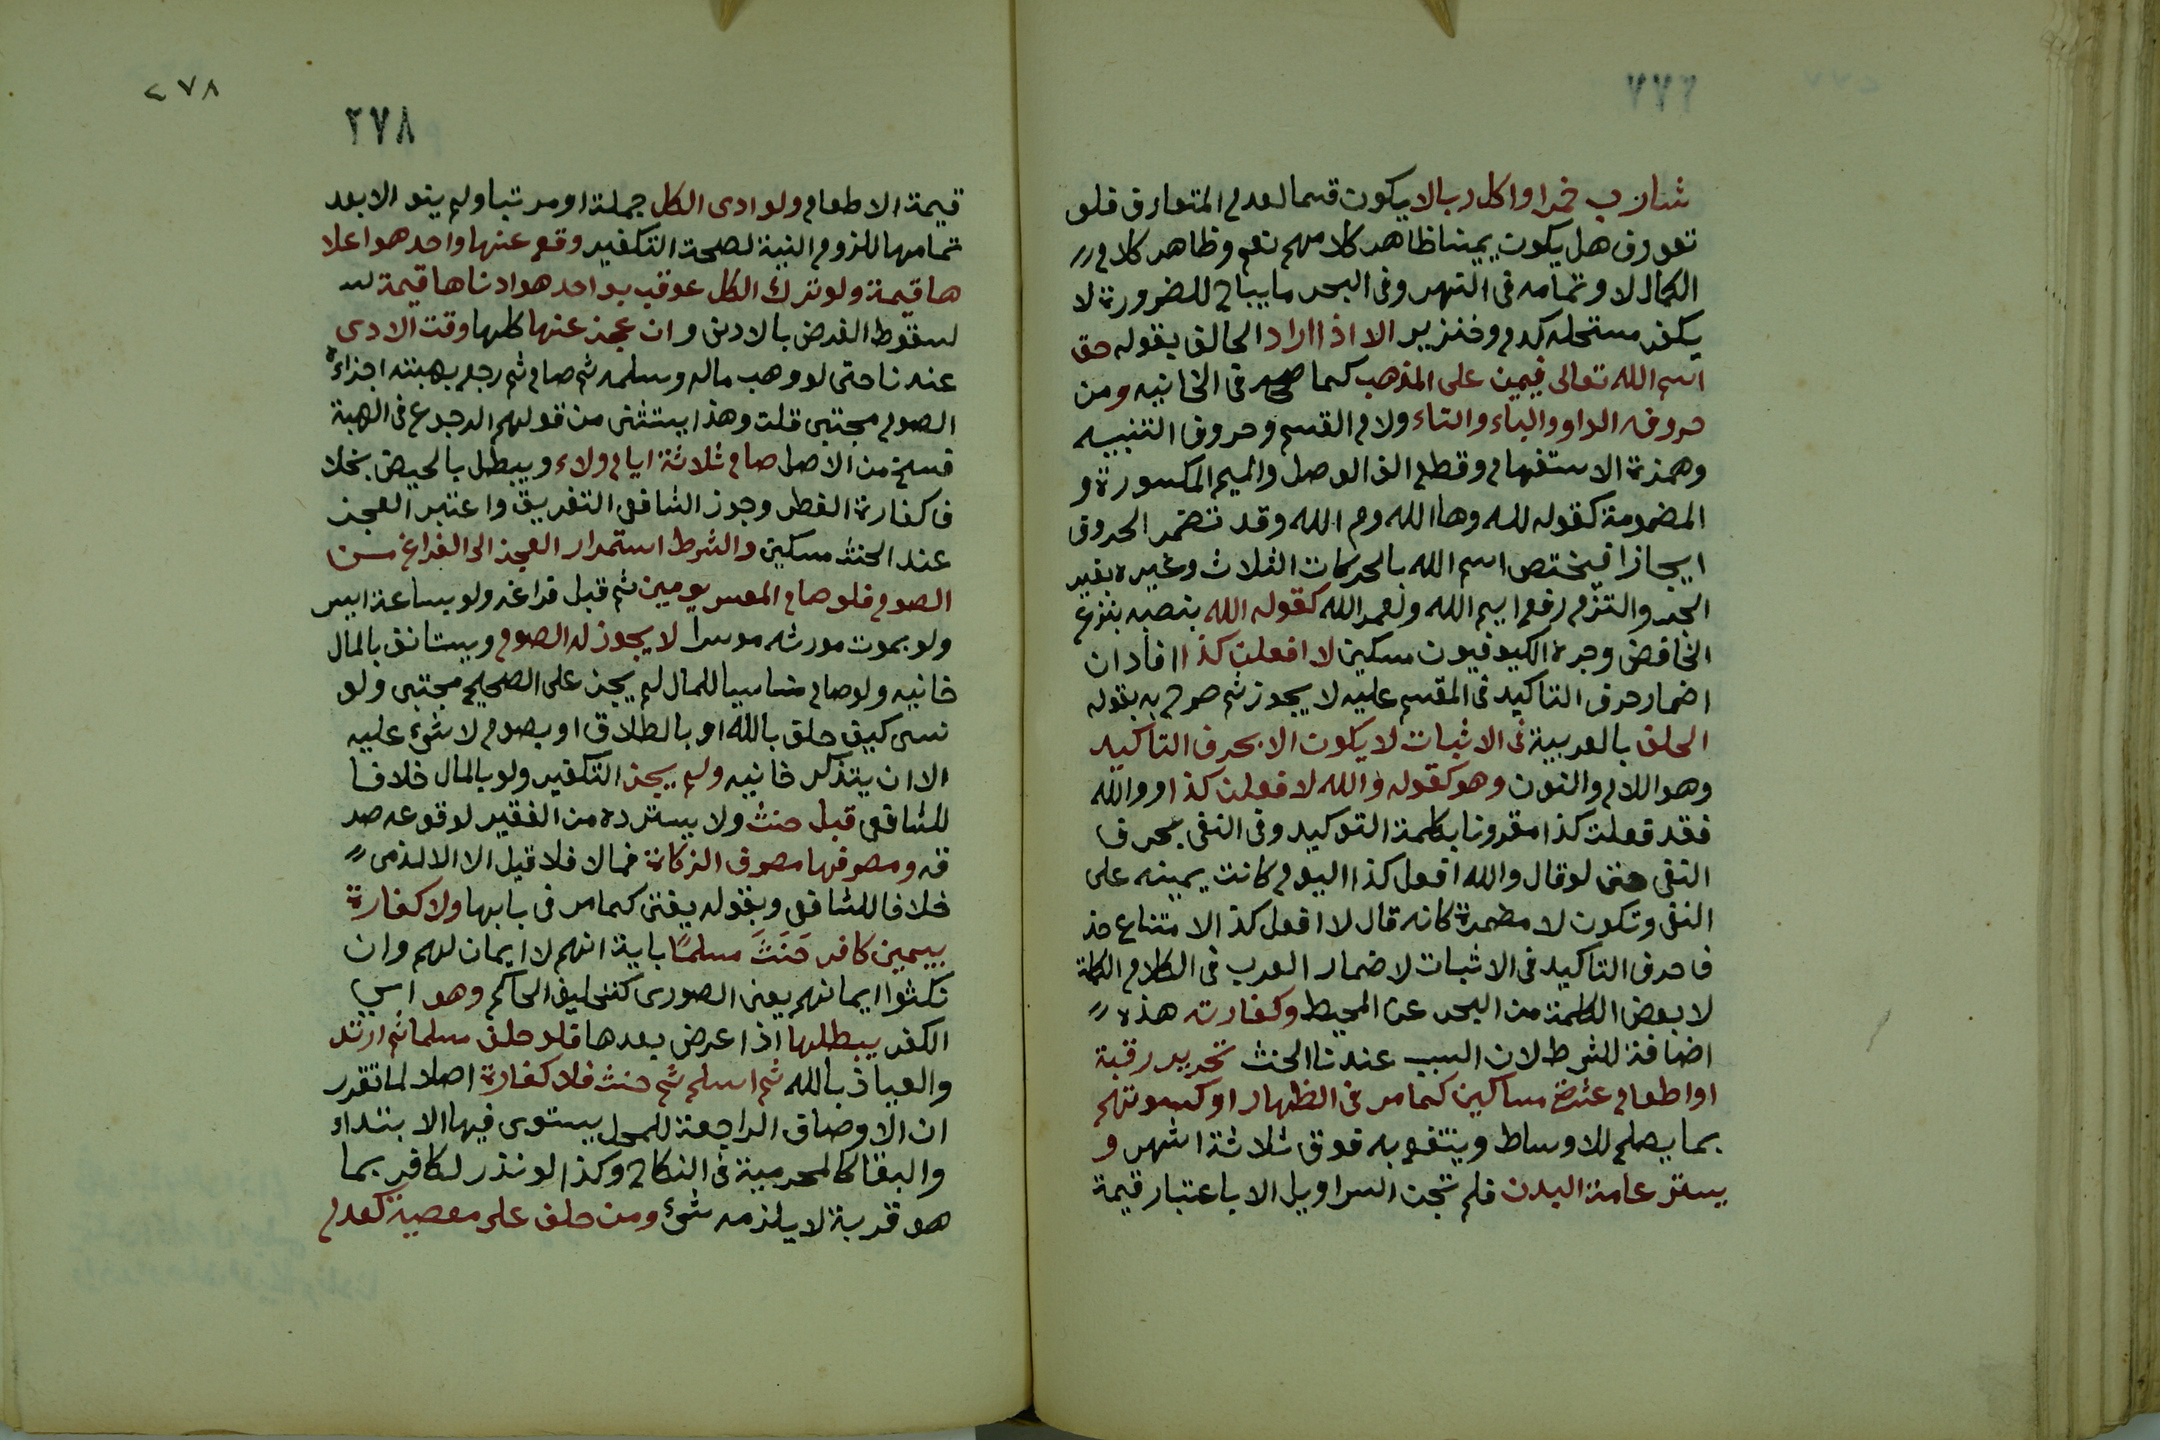 شارب خمرا واكل ربا لا يكون قسما لعدم المتعارف فلو
تعورف هل يكون يمينا ظاهر كلامهم نعم وظاهر كلام
الكمال لا وتمامه في النهر وفي البحر ما يباح للضرورة لا
يكفر مستحله كدم وخنزير الا اذا اراد الحالف بقوله حق
اسم الله تعالى فيمين على المذهب كما صححه في الخانيه ومن
حروفه الواو والباء والتاء ولام القسم وحروف التنبيه
وهمزة الاستفهام وقطع الف الوصل والميم المكسورة و
المضمومة كقوله لله وها الله وم الله وقد تضمر الحروف
ايجازا فيختص اسم الله بالحركات الثلاث وغيره بغير
الجر والتزم رفع ايم الله ولعمر الله كقوله الله بنصبه بنزع
الخافض وجره الكوفيون مسكين لا افعلن كذا افاد ان
اضمار حرف التاكيد في المقسم عليه لا يجوز ثم صرح به بقوله
الحلف بالعربية في الاثبات لا يكون الا بحرف التاكيد
وهو اللام والنون وهو كقوله والله لافعلن كذا ووالله
فقد فعلت كذا مقرونا بكلمة التوكيد وفي النفي بحرف
النفي حتى لو قال والله افعل كذا اليوم كانت يمينه على
النفي وتكون لا مضمرة كانه قال لا افعل كذا لامتناع حذ
ف حرف التاكيد في الاثبات لاضمار العرب في الكلام الكلمة
لا بعض الكلمة من البحر عن المحيط وكفارته هذه
اضافة للشرط لان السبب عندنا الحنث تحرير رقبة
او اطعام عشرة مساكين كما مر في الظهار او كسوتهم
بما يصلح للاوساط وينتفع به فوق ثلاثة اشهر و
يستر عامة البدن فلم تجز السراويل الا باعتبار قيمة
٢٧٨
٢٧٨
قيمة الاطعام ولو ادى الكل جملة او مرتبا ولم ينو الا بعد
تمامها للزوم النية لصحة التكفير وقع عنها واحد هو اعلا
ها قيمة ولو ترك الكل عوقب بواحد هو ادناها قيمة
لسقوط الفرض بالادنى وان عجز عنها كلها وقت الادى
عندنا حتى لو وهب ماله وسلمه ثم صام ثم رجع بهبته اجزاءه
الصوم مجتبى قلت وهذا يستثنى من قولهم الرجوع في الهبة
فسخ من الاصل صام ثلاثة ايام ولاء ويبطل بالحيض بخلا
ف كفارة الفطر وجوز الشافعي التفريق واعتبر العجز
عند الحنث مسكين والشرط استمرار العجز الى الفراغ من
الصوم فلو صام المعسر يومين ثم قبل فراغه ولو بساعة ايسر
ولو بموت مورثه موسرا لا يجوز له الصوم ويستانف بالمال
خانيه ولو صام مناسيا للمال لم يجز على الصحيح مجتبى ولو
نسى كيف حلف بالله او بالطلاق او بصوم لا شيء عليه
الا ان يتذكر خانيه ولم يجز التكفير ولو بالمال خلافا
للشافعي قبل حنث ولا يسترده من الفقير لوقوعه صد
قه ومصرفها مصرف الزكاة فمالا فلا قيل الا الا الذمي
خلافا للشافعي وبقوله يفتى كما مر في بابها ولا كفارة
بيمين كافر حَنَثَ مسلمًا باية انهم لا ايمان لهم وان
نكثوا ايمانهم يعني الصورى كتحليف الحاكم وهو اي
الكفر يبطلها اذا عرض بعدها فلو حلف مسلما ثم ارتد
والعياذ بالله ثم اسلم ثم حنث فلا كفارة اصلا لما تقرر
ان الاوصاف الراجعة للمحل يستوى فيها الابتداء
والبقا كالمحرمية في النكاح وكذا لو نذر لكافر بما
هو قربة لا يلزمه شيء ومن حلف على معصية كعدم